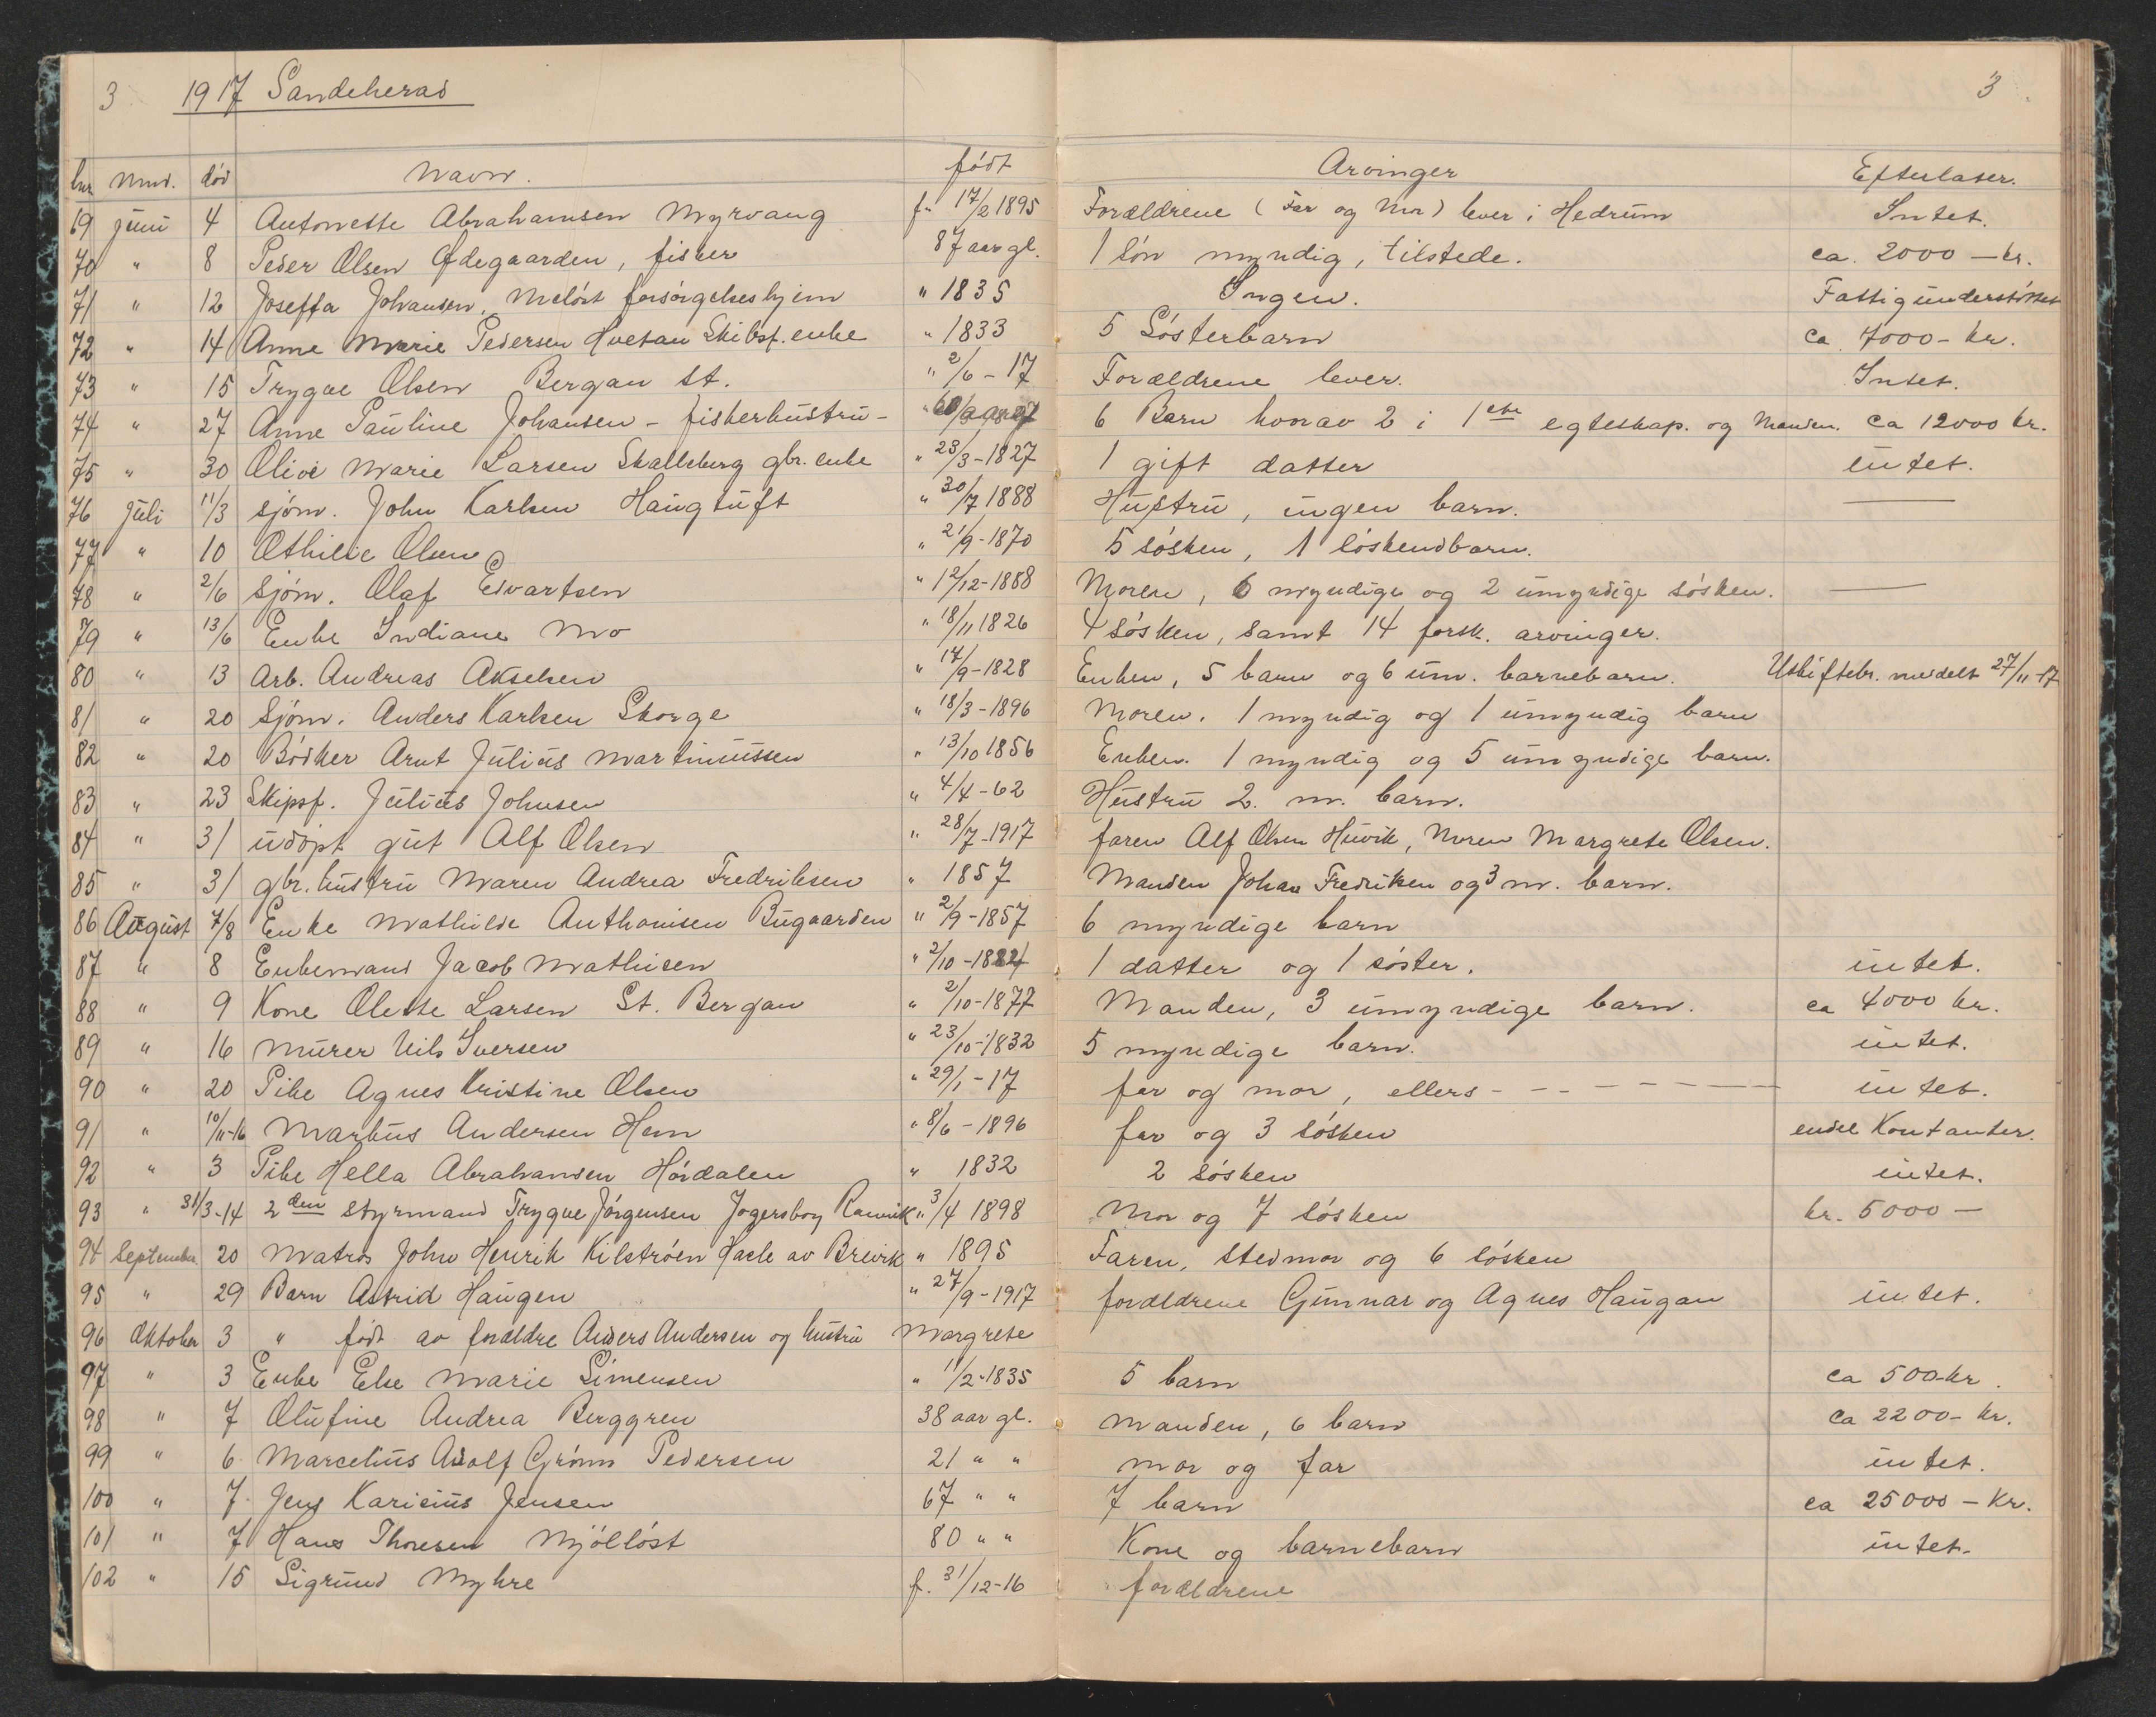 3 1917 Sandeherad 3
lnr. Mnd. død Navn. født Arvinger Efterlater.
69 juni 4 Antonette Abrahamsen Myrvang f. 17/2 1895 Forældrene (Far og Mor) lever i Hedrum Intet.
70 " 8 Peder Olsen Ødegaarden, fisker 87 aar gl. 1 søn myndig, tilstede. ca. 2000 — kr.
71 " 12 Joseffa Johansen, Meløst forsørgelseshjem " 1835 Ingen. Fattigunderstøttet
72 " 14 Anne Marie Pedersen Hvetan Skibsf. enke " 1833 5 Søsterbarn ca. 7000 - kr.
73 " 15 Trygve Olsen Bergan st. " 2/6 - 17 Forældrene lever. Intet.
74 " 27 Anne Pauline Johansen - fiskerhustru - 6 Barn hvorav 2 i 1ste egteskap. og Manden. ca 12000 kr.
75 " 30 Olive Marie Larsen Skalleberg gbr. enke " 23/3 - 1827 1 gift datter intet.
76 Juli 11/3 sjøm. John Karlsen Haugtuft " 30/7 1888 Hustru, ingen barn. —
77 " 10 Othilie Olsen " 21/9 - 1870 5 søsken, 1 søskendbarn.
78 " 2/6 sjøm. Olaf Edvartsen " 12/12 - 1888 Moren, 6 myndige og 2 umyndige søsken. —
79 " 13/6 Enke Indiane Mo " 18/11 1826 4 søsken, samt 14 forsk. arvinger.
80 " 13 Arb. Andreas Akselsen " 17/9 - 1828 Enken, 5 barn og 6 um. barnebarn. Uskiftebr. meddelt 27/11 - 17
81 " 20 Sjøm. Anders Karlsen Skorge " 18/3 - 1896 Moren. 1 myndig og 1 umyndig barn
82 " 20 Bødker Arnt Julius Martinussen " 13/10 1856 Enken. 1 myndig og 5 umyndige barn.
83 " 23 Skipsf. Julius Johnsen " 4/4 - 62 Hustru 2. m. barn.
84 " 31 udøpt gut Alf Olsen " 28/7 - 1917 faren Alf Olsen Huvik, Moren Margrete Olsen.
85 " 31 gbr. hustru Maren Andrea Fredriksen " 1857 Manden Johan Fredriksen og 3 m. barn.
86 August 7/8 Enke Mathilde Anthonisen Bugaarden " 2/9 - 1857 6 myndige barn
87 " 8 Enkemand Jacob Mathisen " 2/10 - 1824 1 datter og 1 søster. intet.
88 " 9 Kone Olette Larsen St. Bergan " 2/10 - 1877 Manden, 3 umyndige barn. ca 4000 kr.
89 " 16 Murer Nils Iversen " 23/10 - 1832 5 myndige barn. intet.
90 " 20 Pike Agnes Kristine Olsen " 29/1 - 17 far og mor, ellers - - - - - - - - intet.
91 " 10/11-16 Markus Andersen Hem " 8/6 - 1896 far og 3 søsken endel Kontanter.
92 " 3 Pike Hella Abrahamsen Hørdalen " 1832 2 søsken intet.
93 " 31/3-14 2den styrmand Trygve Jørgensen Jogersboy Ranvik " 3/4 1898 Mor og 7 søsken kr. 5000 —
94 September 20 Matros John Henrik Kilstrøen Hasle av Brevik " 1895 Faren, stedmor og 6 søsken
95 " 29 Barn Astrid Haugen " 27/9 - 1917 forældrene Gunnar og Agnes Haugan intet.
96 Oktober 3 " født av forældre Anders Andersen og hustru Margrete
97 " 3 Enke Else Marie Simensen " 11/2 - 1835 5 barn ca 500 kr.
98 " 7 Olufine Andrea Berggren 38 aar gl. Manden, 6 barn ca 2200 - kr.
99 " 6 Marcelius Adolf Grønn Pedersen 21 " " mor og far intet.
100 " 7 Jens Karisius Jensen 67 " " 7 barn ca 25000 - Kr.
101 " 7 Hans Thoresen Mjølløst 80 " " Kone og barnebarn intet.
102 " 15 Sigrund Myhre f. 31/12 - 16 forældrene